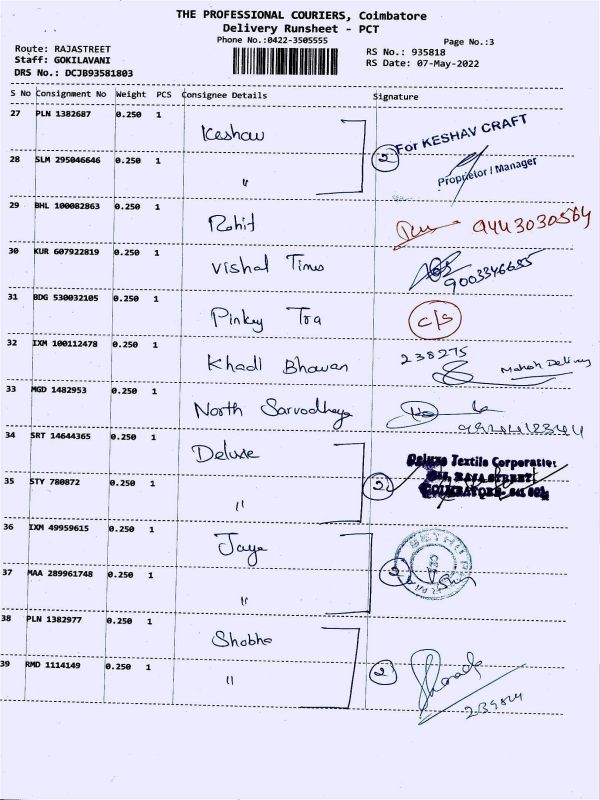 THE PROFESSIONAL COURIERS, Coimbatore
Delivery Runsheet - PCT
Phone No.:0422-3505555
Page No.:3
Route: RAJASTREET
Staff: GOKILAVANI
DRS No.: DCJB93581803
RS No.: 935818
RS Date: 07-May-2022
S No Consignment No Weight PCS Consignee Details Signature
27 PLN 1382687 0.250 1 Keshav
For KESHAV CRAFT
28 SLM 295046646 0.250 1 " 2
Proprietor / Manager
29 BHL 100082863 0.250 1 Rohit 9443030564
30 KUR 607922819 0.250 1 Vishal Times 9003346685
31 BDG 530032105 0.250 1 Pinkey Tra C/S
32 IXM 100112478 0.250 1 Khadi Bhavan 238275
33 MGD 1482953 0.250 1 North Sarvodhaya
34 SRT 14644365 0.250 1 Deluxe
Deluxe Textile Corporation
RAJA STREET
COIMBATORE- 641 001
35 STY 780872 0.250 1 " 2
36 IXM 49959615 0.250 1 Jaya
37 MAA 289961748 0.250 1 " 2
38 PLN 1382977 0.250 1 Shobha
39 RMD 1114149 0.250 1 " 2